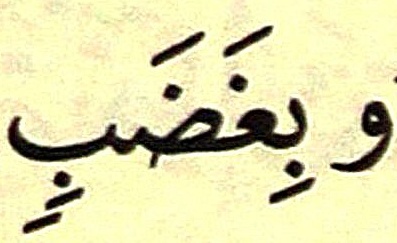 و بِغَضَبٍ